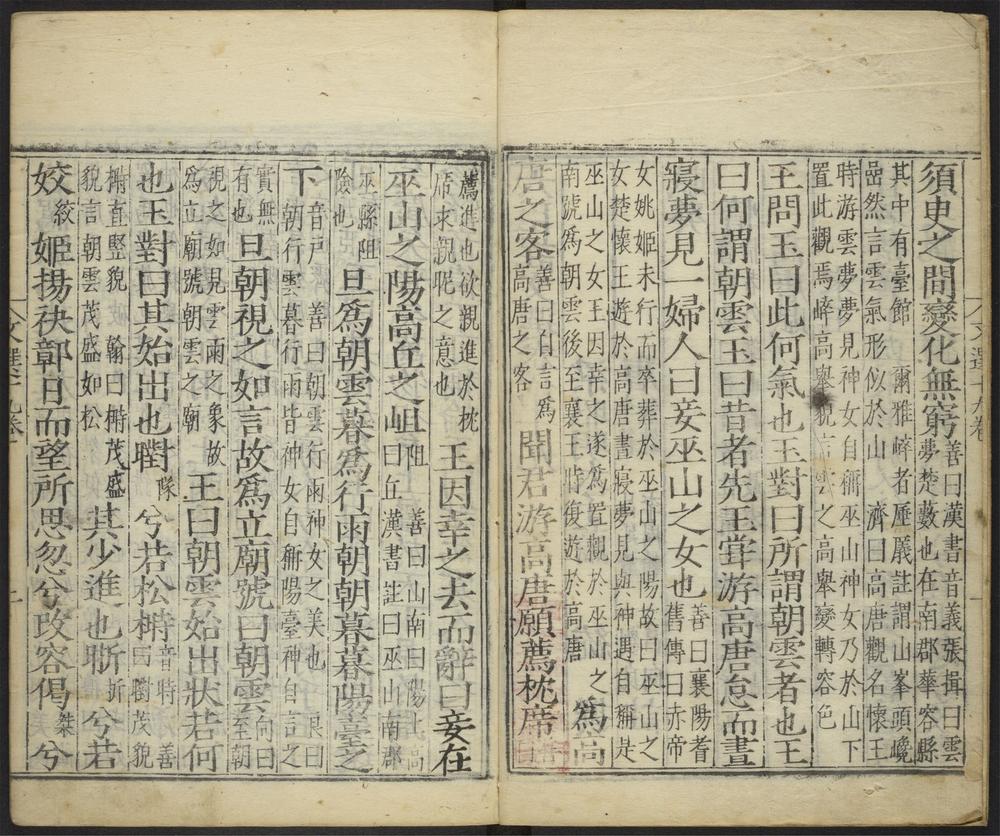 須臾之間變化無窮
善曰漢書音義張揖曰雲
夢楚藪也在南郡華容縣
其中有臺館 爾雅崒者厜㕒註謂山峯頭巉
嵒然言雲氣形似於山 濟曰高唐觀名懷王
時游雲夢夢見神女自稱巫山神女乃於山下
置此觀焉崒高舉貌言雲之高舉變轉容色
王問玉曰此何氣也玉對曰所謂朝雲者也王
曰何謂朝雲玉曰昔者先王甞游高唐怠而晝
寢夢見一婦人曰妾巫山之女也
善曰襄陽耆
舊傳曰赤帝
女姚姬未行而卒葬於巫山之陽故曰巫山之
女楚懷王遊於高唐晝寢夢見與神遇自稱是
巫山之女王因幸之遂爲置觀於巫山之
南號爲朝雲後至襄王時復遊於高唐
爲高
唐之客
善曰自言爲
高唐之客
聞君游高唐願薦枕席
薦進也欲親進於枕
席求親昵之意也
王因幸之去而辭曰妾在
巫山之陽高丘之岨
阻 善曰山南曰陽土高
曰丘漢書註曰巫山南郡
巫縣阻
險也
旦爲朝雲暮爲行雨朝朝暮暮陽臺之
下
音戶 善曰朝雲行雨神女之美也 良曰
朝行雲暮行雨皆神女自稱陽臺神自言之
實無
有也
旦朝視之如言故爲立廟號曰朝雲
向曰
至朝
視之如見雲雨之象故
爲立廟號朝雲之廟
王曰朝雲始出狀若何
也玉對曰其始出也㬣
隊
兮若松榯
音時 善
曰㬣茂貌
榯直豎貌 翰曰榯茂盛
貌言朝雲茂盛如松
其少進也晣
折
兮若
姣
絞
姬揚袂鄣日而望所思忽兮改容偈
桀
兮